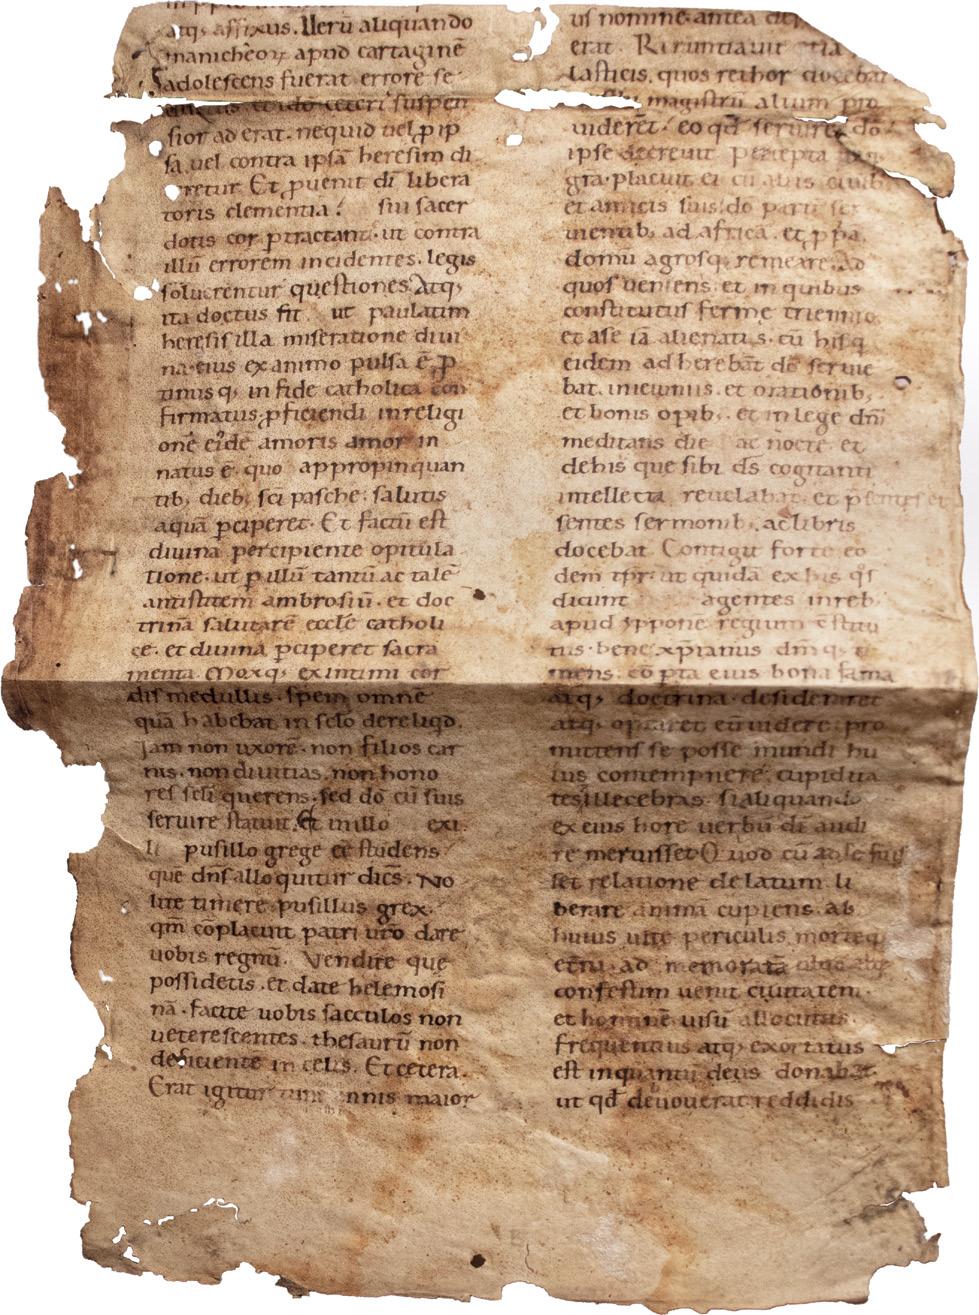 atq; affixus. Uerū aliquando
manicheoꝝ apud cartaginē
adolescens fuerat errore se
suspen
sior ad erat. nequid uel ꝓ ip
sa uel contra ipsā heresim di
retur. Et ꝓuenit dī libera
toris clementia! sui sacer
dotis cor ꝑtractant. ut contra
illū errorem incidentes. legis
soluerentur questiones. Atq;
ita doctus fit ut paulatim
heresis illa miseratione diui
na. eius ex animo pulsa ē. ꝓ
tinus q; in fide catholica con
firmatus. ꝓficiendi in religi
onē eidē amoris amor in
natus ē. quo appropinquan
tib; dieb; sc̄i pasche. salutis
aquā ꝑciperet. Et factū est
diuina percipiente opitula
tione. ut ꝑ illū tantū ac talē
antistitem ambrosiū. et doc
trinā salutarē eccl̄e catholi
ce. et diuina ꝑciperet sacra
menta. Moxq; ex intimi cor
dis medullis. spem omnē
quā habebat in sc̄lo dereliqd.
Jam non uxorē. non filios car
nis. non diuitias. non hono
res sc̄li querens. sed dō cū suis
seruire statuit. Et in illo exi
li pusillo grege ēē studens
que dn̄s alloquitur dicēs. No
lite timere pusillus grex.
qm̄ cōplacuit patri ur̄o dare
uobis regnū. Vendite que
possidetis. et date helemosi
nā. facite uobis sacculos non
ueterescentes. thesaurū non
deficiente in celis. Et cetera.
Erat igitur annis maior
us nomine. antea
erat. Renuntiauit etiā
lasticis. quos rethor docebat
magistrū alium pro
uiderēt. eo qd̄ seruire dō
ipse decreuit. Percepta
gra. placuit ei cū aliis ciuib;
et amicis suis. dō pariter ser
uientib; ad africā. et ꝓp̄a
domū agrosq; remeare. Ad
quos ueniens. et in quibus
constitutus ferme triennio
et a se iā alienatis. cū his q
eidem adherebāt dō seruie
bat. ieiuniis. et orationib;
et bonis opib;. et in lege dn̄i
meditans die ac nocte. et
de his que sibi d̄s cogitanti
intellecta reuelabat. et p̄sentes et
sentes sermonib;. ac libris
docebat. Contigit forte eo
dem tp̄r. ut quidā ex his q̄s
dicunt agentes in reb;
apud yppone regium cstitu
tus. bene xp̄ianus dm̄q; ti
mens. cōꝑta eius bona fama
atq; doctrina. desideraret
atq; optaret eū uidere. pro
mittens se posse mundi hu
ius contempnere. cupidita
tes illecebras. si aliquando
ex eius hore uerbū dī audi
re meruisset. Quod cū ad se fuis
set relatione delatum. li
berare animā cupiens. ab
huius uite periculis. morteq;
etn̄a. ad memoratā
confestim uenit ciuitatem.
et hominē uisū allocutus.
frequentius atq; exortatus
est inquantū deus donabat.
ut qd̄ deuouerat reddidis